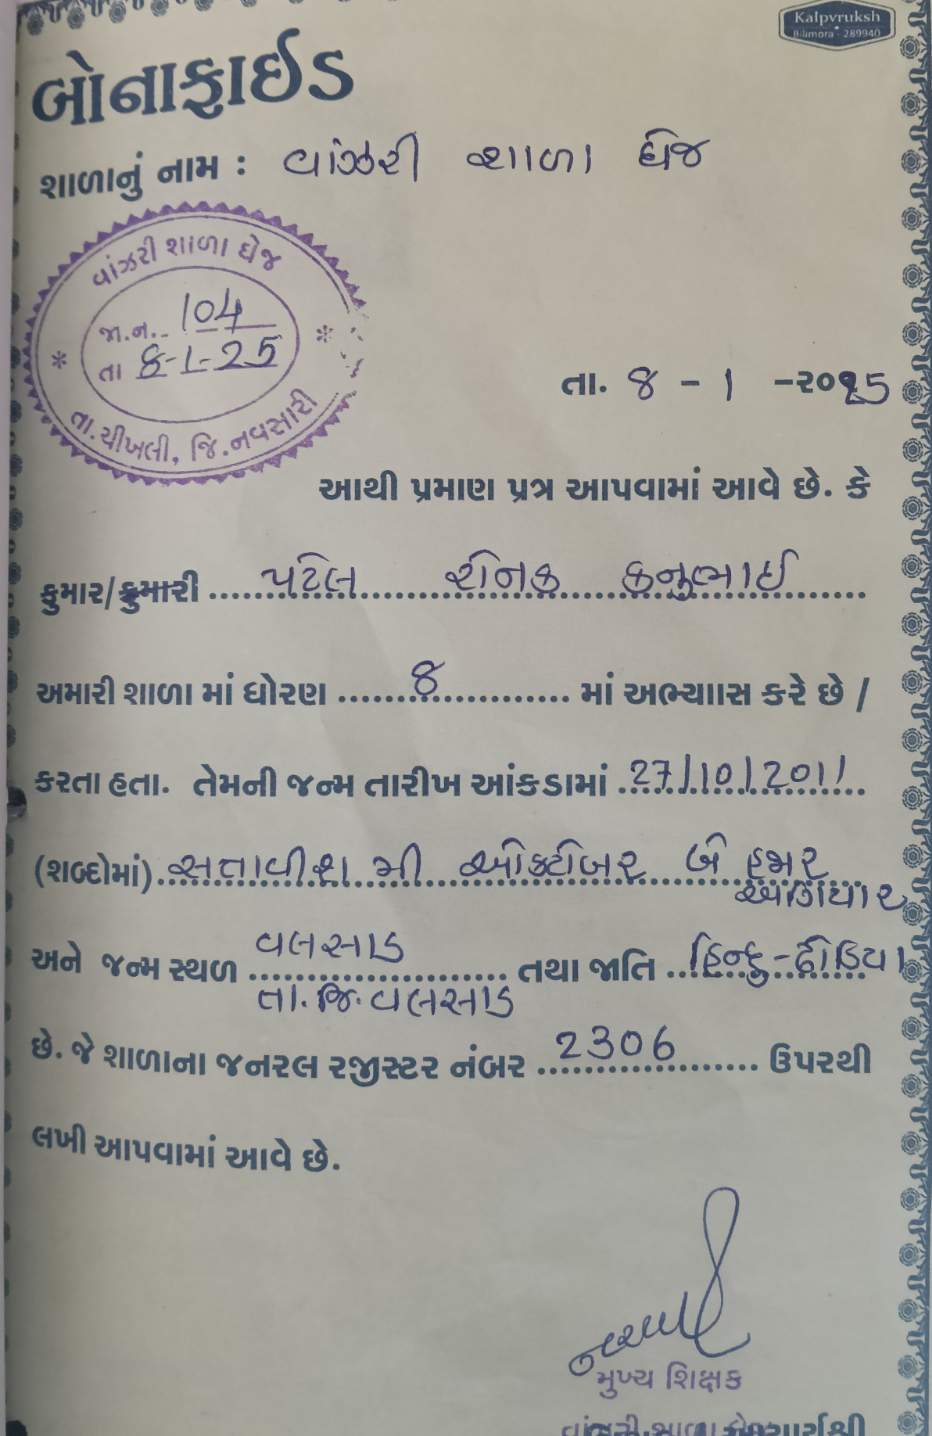 Kalpvruksh
Bilimora - 289940
બોનાફાઈડ
શાળાનું નામ : વાંઝરી શાળા ઘેજ
વાંઝરી શાળા ઘેજ
જા.ન.. 104
તા 8-1-25
તા.ચીખલી, જિ.નવસારી
તા. 8 - 1 -૨૦25
આથી પ્રમાણ પત્ર આપવામાં આવે છે. કે
કુમાર/કુમારી પટેલ રોનક કનુભાઈ
અમારી શાળા માં ધોરણ 8 માં અભ્યાસ કરે છે /
કરતા હતા. તેમની જન્મ તારીખ આંકડામાં 27/10/2011
(શબ્દોમાં) સત્તાવીશ મી ઓક્ટોબર બે હજાર
અગિયાર
અને જન્મ સ્થળ વલસાડ તથા જાતિ હિન્દુ-ઢોડિયા
તા.જિ.વલસાડ
છે. જે શાળાના જનરલ રજીસ્ટર નંબર 2306 ઉપરથી
લખી આપવામાં આવે છે.
મુખ્ય શિક્ષક
વાંઝરી શાળા